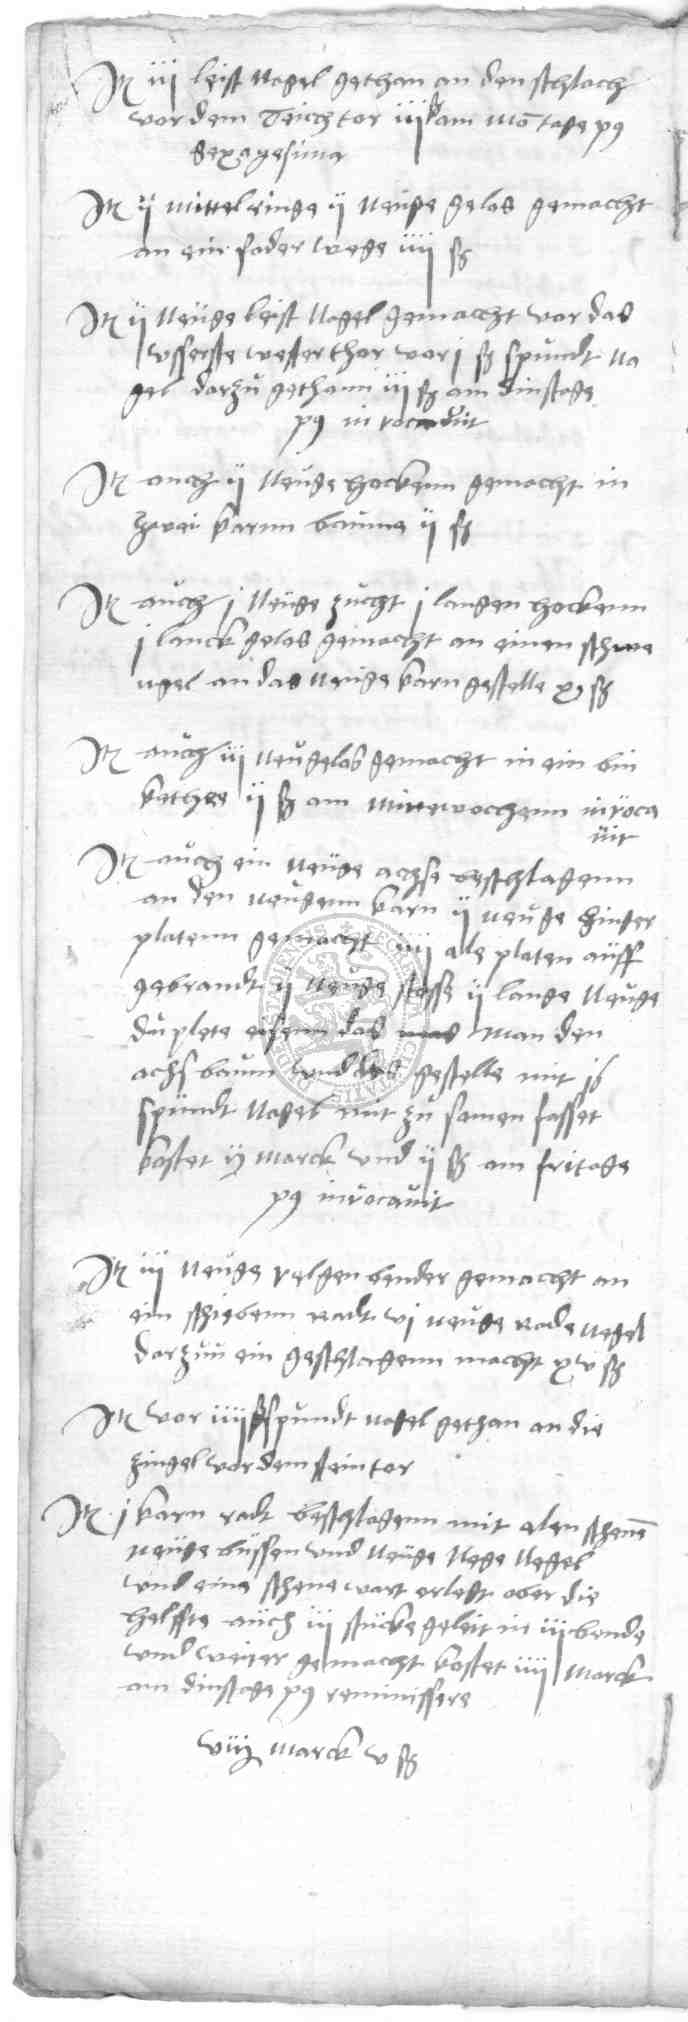 It iii leist Nagel gethan an den schlach
vor dem Teich tor iiii d am Montage p9
Sexagesima
It ij Mittelringe ij Neuge gelos gemacht
an ein foder wege iiii ß
It ij Neuge leist Nagel gemacht vor das
vsserste wesser thor vor j ß spundt Na
gel darzu gethann iij ß am dinstage
p9 in vocauit
It auch ij Neuge hockenn gemacht in
zwei karnn baume ij ß
It auch j Neuge zucht j langen hockenn
j lanck gelos gemacht an einen schwe
ngel an das Neuge karn gestelle x ß
It auch iij Neugelos gemacht in ein bin
kethee ij ß am Mittewochenn invoca
uit
It auch ein Neuge achse beschlagenn
an den Neugenn karn ij Neuge hinger
platenn gemacht iiij ale platen auff
gebrandt ij Neuge stosse ij lange Neuge
duplete eisenn das man den
achs baum vnd das gestelle mit j ß
spundt Nagel mit zu samen fasset
kostet ij Marck vnd ij ß am fritage
p9 invocauit
It iij Neuge velgen bender gemacht an
ein schiebenn radt vi neuge rade negel
darzuu ein geschlagenn macht xv ß
It vor iiii ß spundt nagel gethan an die
zingel vor dem stein tor
It j karn radt beschlagenn mit alen schenen
neuge bussen vnd Neuge Nege Negel
vnd eine schene wart erlegt ober die
helffte auch iij stucke geleit in iij bende
vnd weiter gemacht kostet iiii Marck
am dinstage p9 reminissere
viij Marck v ß